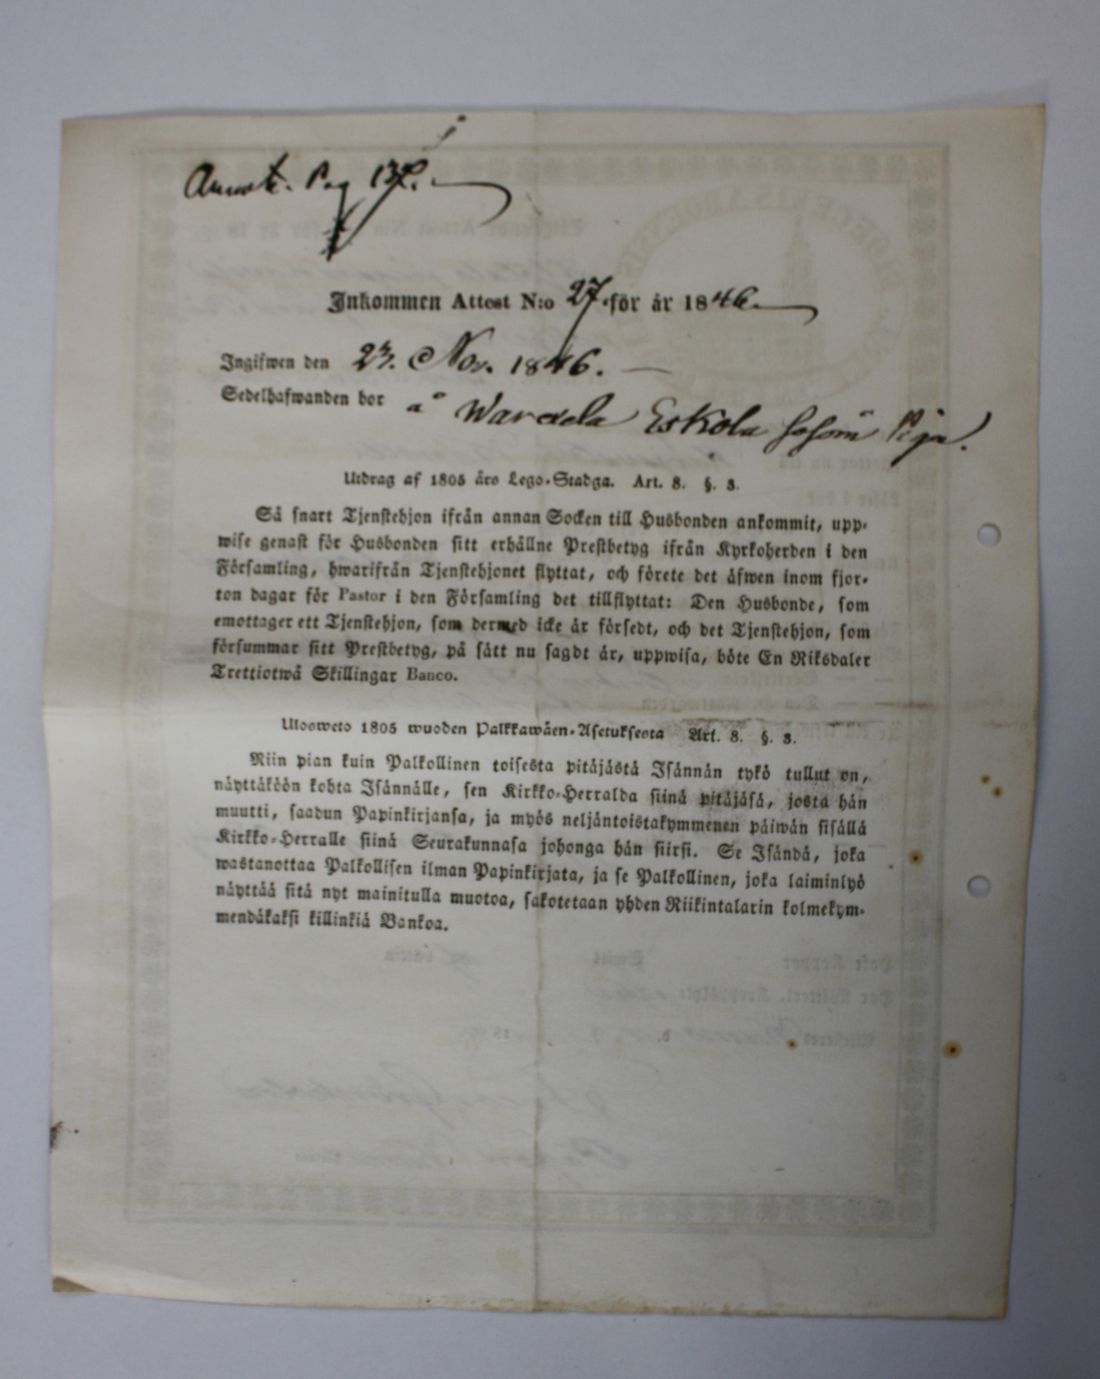 Annot. Pag 137.
Inkommen Attest N:o 27. för år 1846.
Ingifwen den 23. Nov. 1846.
Sedelhafwanden bor å Wardela Eskola såsom Piga.
Utdrag af 1805 års Lego-Stadga. Art. 8. §. 3.
Så snart Tjenstehjon ifrån annan Socken till Husbonden ankommit, upp-
wise genast för Husbonden sitt erhållne Prestbetyg ifrån Kyrkoherden i den
Församling, hwarifrån Tjenstehjonet flyttat, och förete det äfwen inom fjor-
ton dagar för Pastor i den Församling det tillflyttat: Den Husbonde, som
emottager ett Tjenstehjon, som dermed icke är försedt, och det Tjenstehjon, som
försummar sitt Prestbetyg, på sätt nu sagdt är, uppwisa, böte En Riksdaler
Trettiotwå Skillingar Banco.
Ulosweto 1805 wuoden Palkkawäen-Asetuksesta Art. 8. §. 3.
Niin pian kuin Palkollinen toisesta pitäjästä Isännän tykö tullut on,
näyttäköön kohta Isännälle, sen Kirkko-Herralda siinä pitäjäsä, josta hän
muutti, saadun Papinkirjansa, ja myös neljäntoistakymmenen päiwän sisällä
Kirkko-Herralle siinä Seurakunnasa johonga hän siirsi. Se Isändä, joka
wastanottaa Palkollisen ilman Papinkirjata, ja se Palkollinen, joka laiminlyö
näyttää sitä nyt mainitulla muotoa, sakotetaan yhden Riikintalarin kolmekym-
mendäkaksi killinkiä Bankoa.